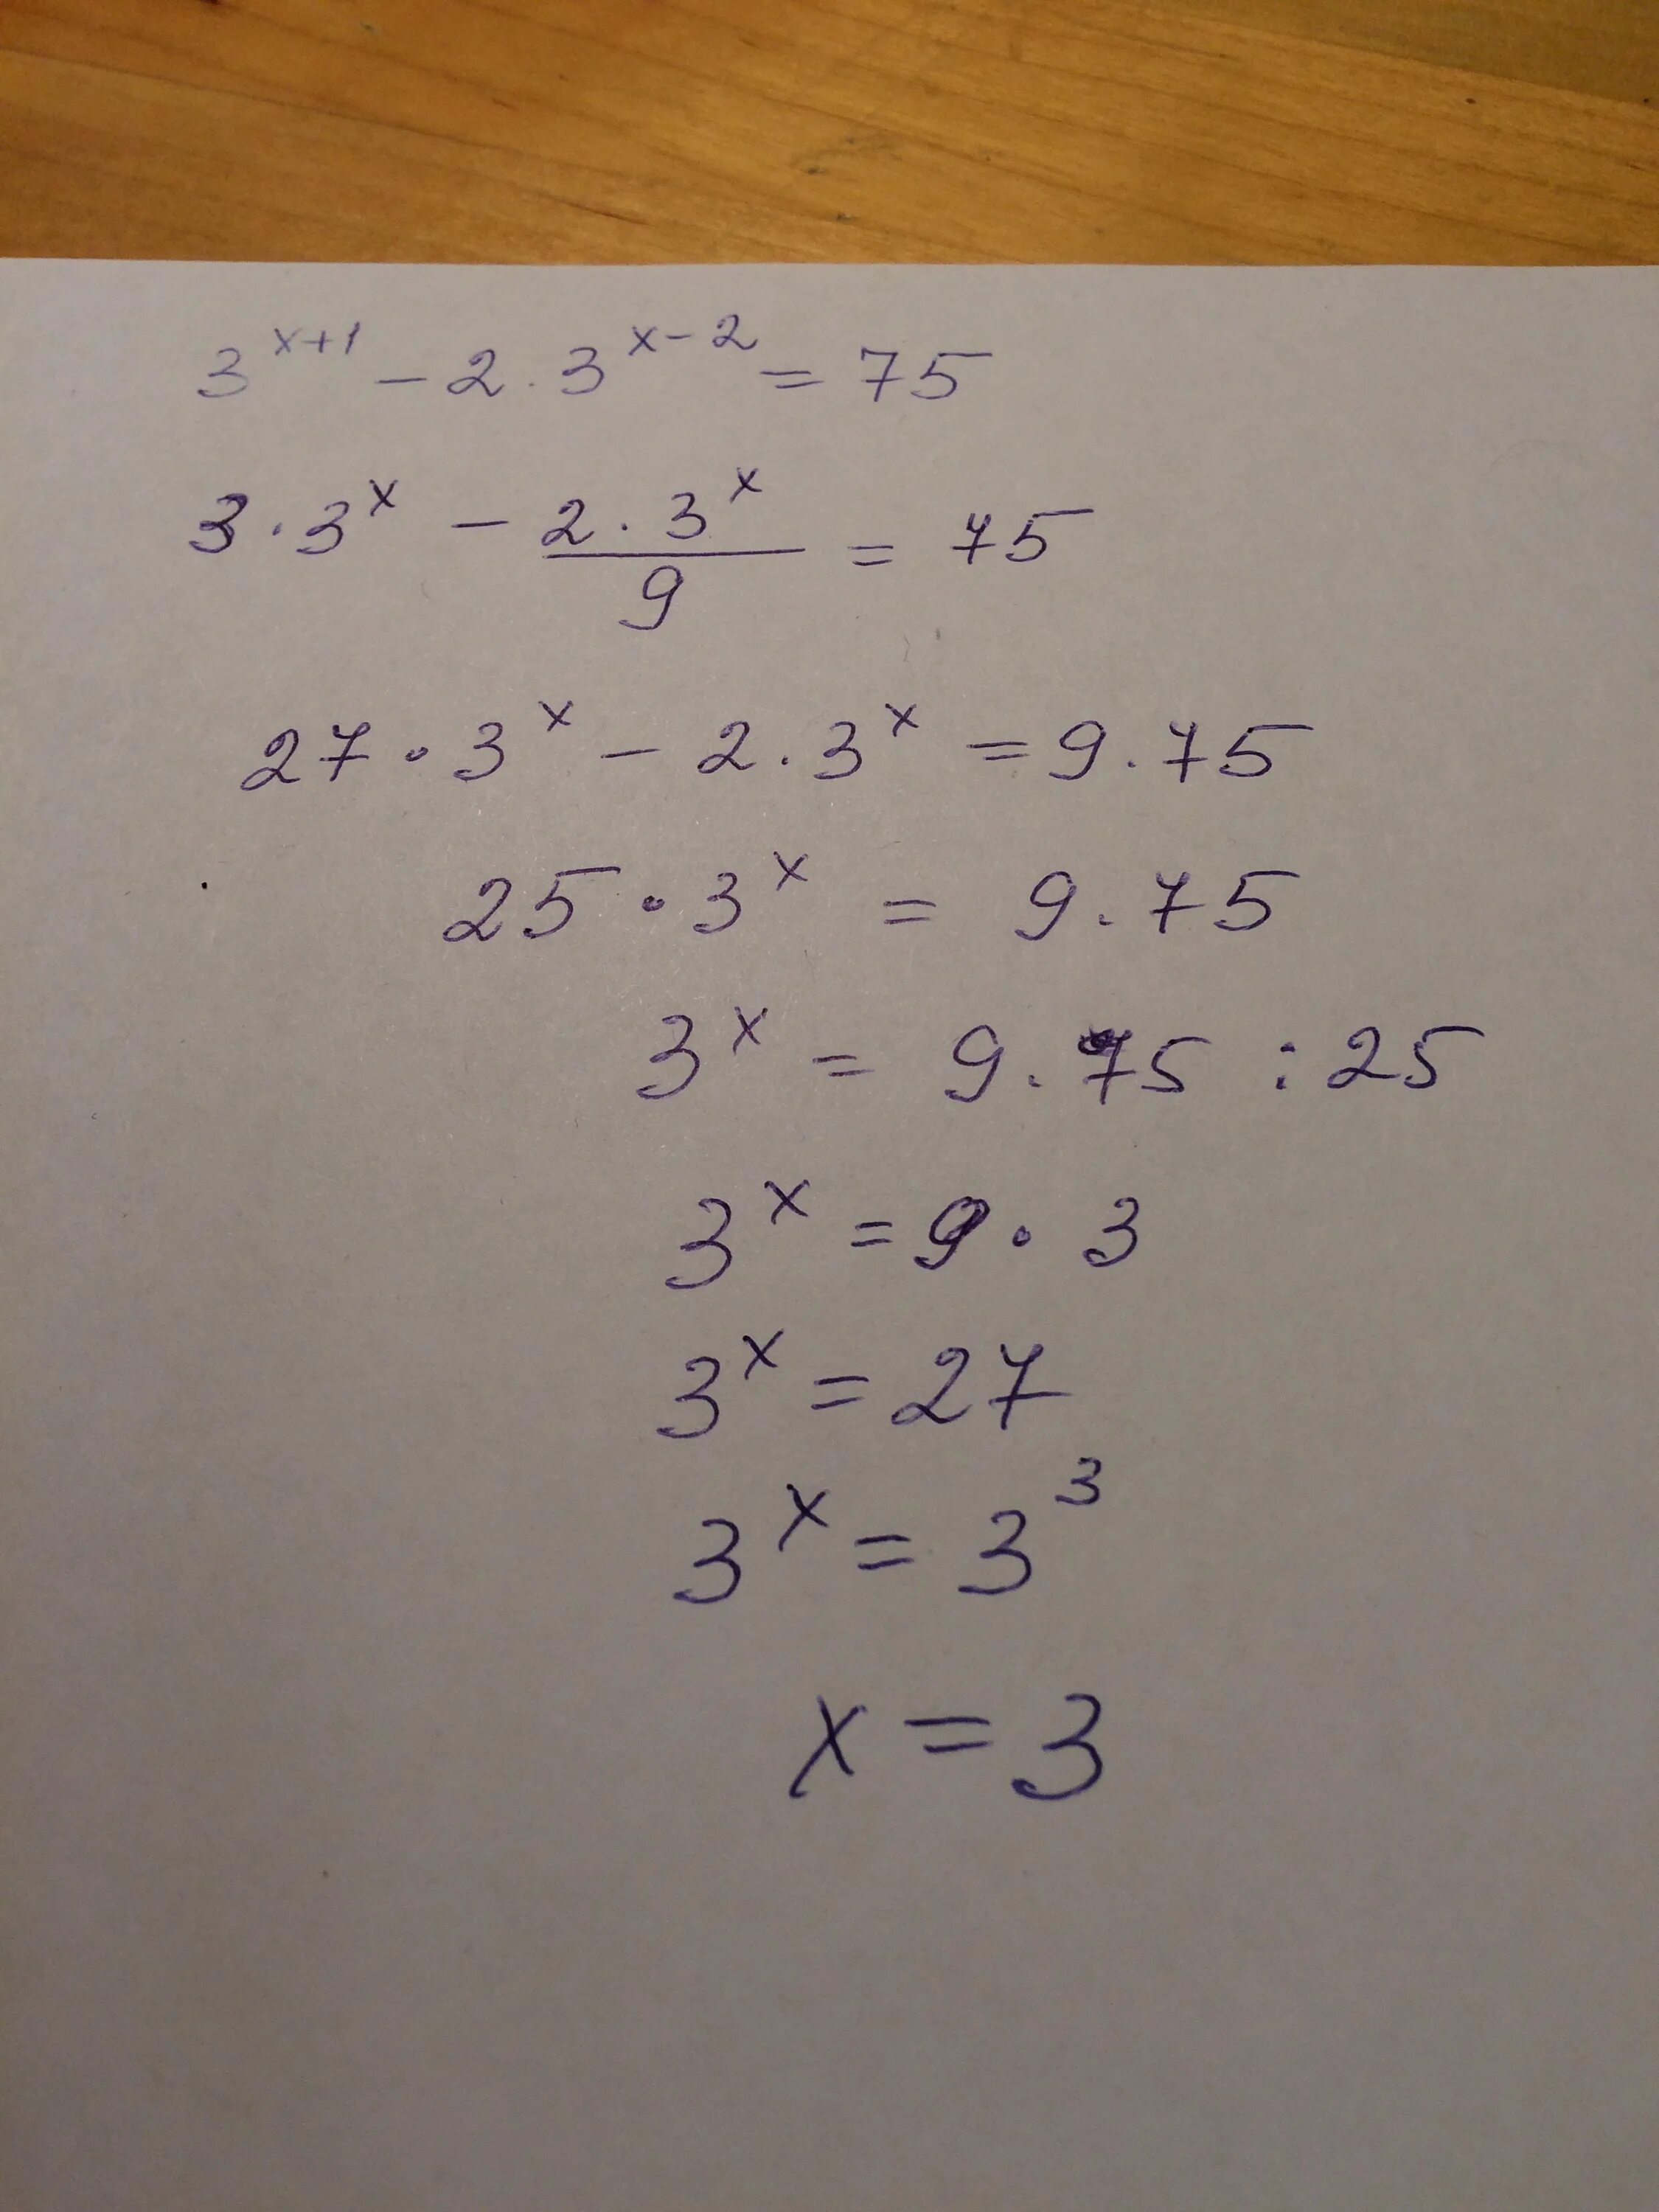 3^{x+1} - 2 · 3^{x-2} = 75
3 · 3^x - \frac{2 · 3^x}{9} = 75
27 · 3^x - 2 · 3^x = 9 · 75
25 · 3^x = 9 · 75
3^x = 9 · 75 : 25
3^x = 9 · 3
3^x = 27
3^x = 3^3
x = 3